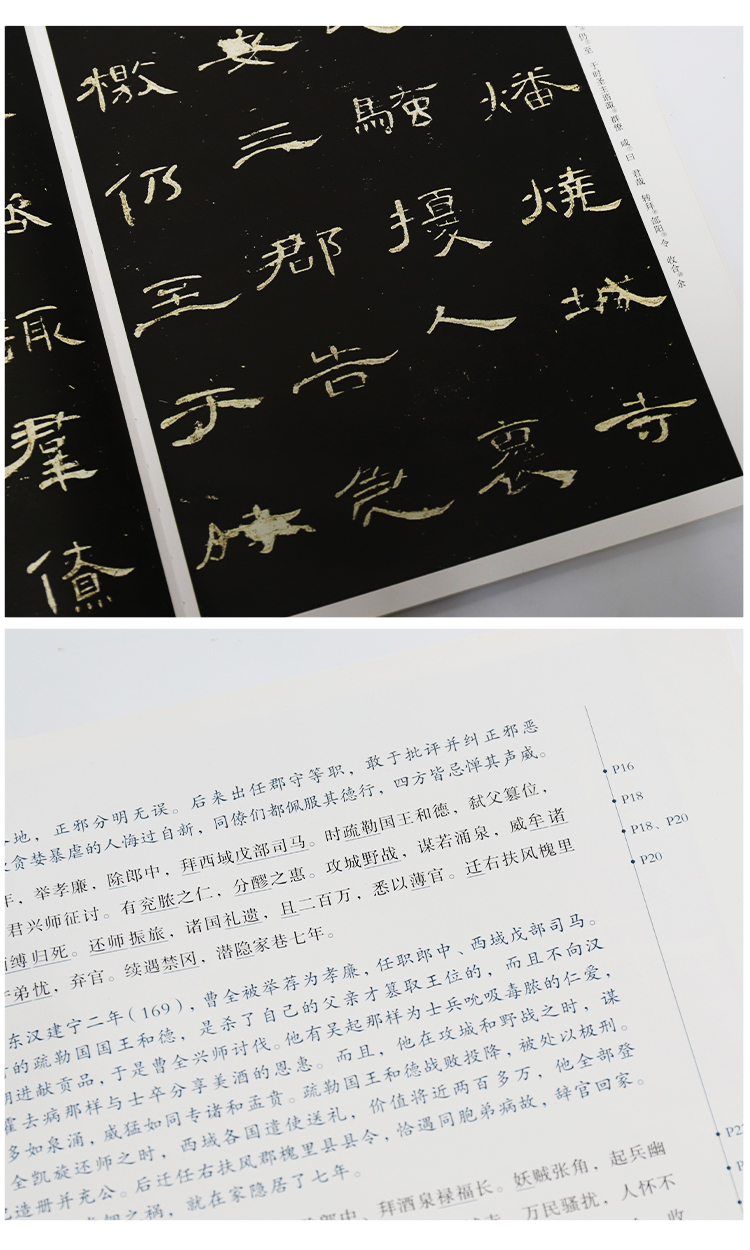 燔燒城寺
騷擾人裹
安三郡告急
檄仍至于時
諏羣僚
仍至 于时圣主谘诹 群僚 咸曰 君哉 转拜 郃阳令 收合余
地，正邪分明无误。后来出任郡守等职，敢于批评并纠正邪恶
贪婪暴虐的人悔过自新，同僚们都佩服其德行，四方皆忌惮其声威。
年，举孝廉，除郎中，拜西域戊部司马。时疏勒国王和德，弑父篡位，
君兴师征讨。有兖脓之仁，分醪之惠。攻城野战，谋若涌泉，威牟诸
面缚归死。还师振旅，诸国礼遗，且二百万，悉以薄官。迁右扶风槐里
弟忧，弃官。续遇禁冈，潜隐家巷七年。
东汉建宁二年（169），曹全被举荐为孝廉，任职郎中、西域戊部司马。
的疏勒国国王和德，是杀了自己的父亲才篡取王位的，而且不向汉
朝进献贡品，于是曹全兴师讨伐。他有吴起那样为士兵吮吸毒脓的仁爱，
霍去病那样与士卒分享美酒的恩惠。而且，他在攻城和野战之时，谋
多如泉涌，威猛如同专诸和孟贲。疏勒国王和德战败投降，被处以极刑。
全凯旋还师之时，西域各国遣使送礼，价值将近两百多万，他全部登
记造册并充公。后迁任右扶风郡槐里县县令，恰遇同胞弟病故，辞官回家。
之祸，就在家隐居了七年。
郎中、拜酒泉禄福长。妖贼张角，起兵幽
万民骚扰，人怀不
收
P16
P18
P18、P20
P20